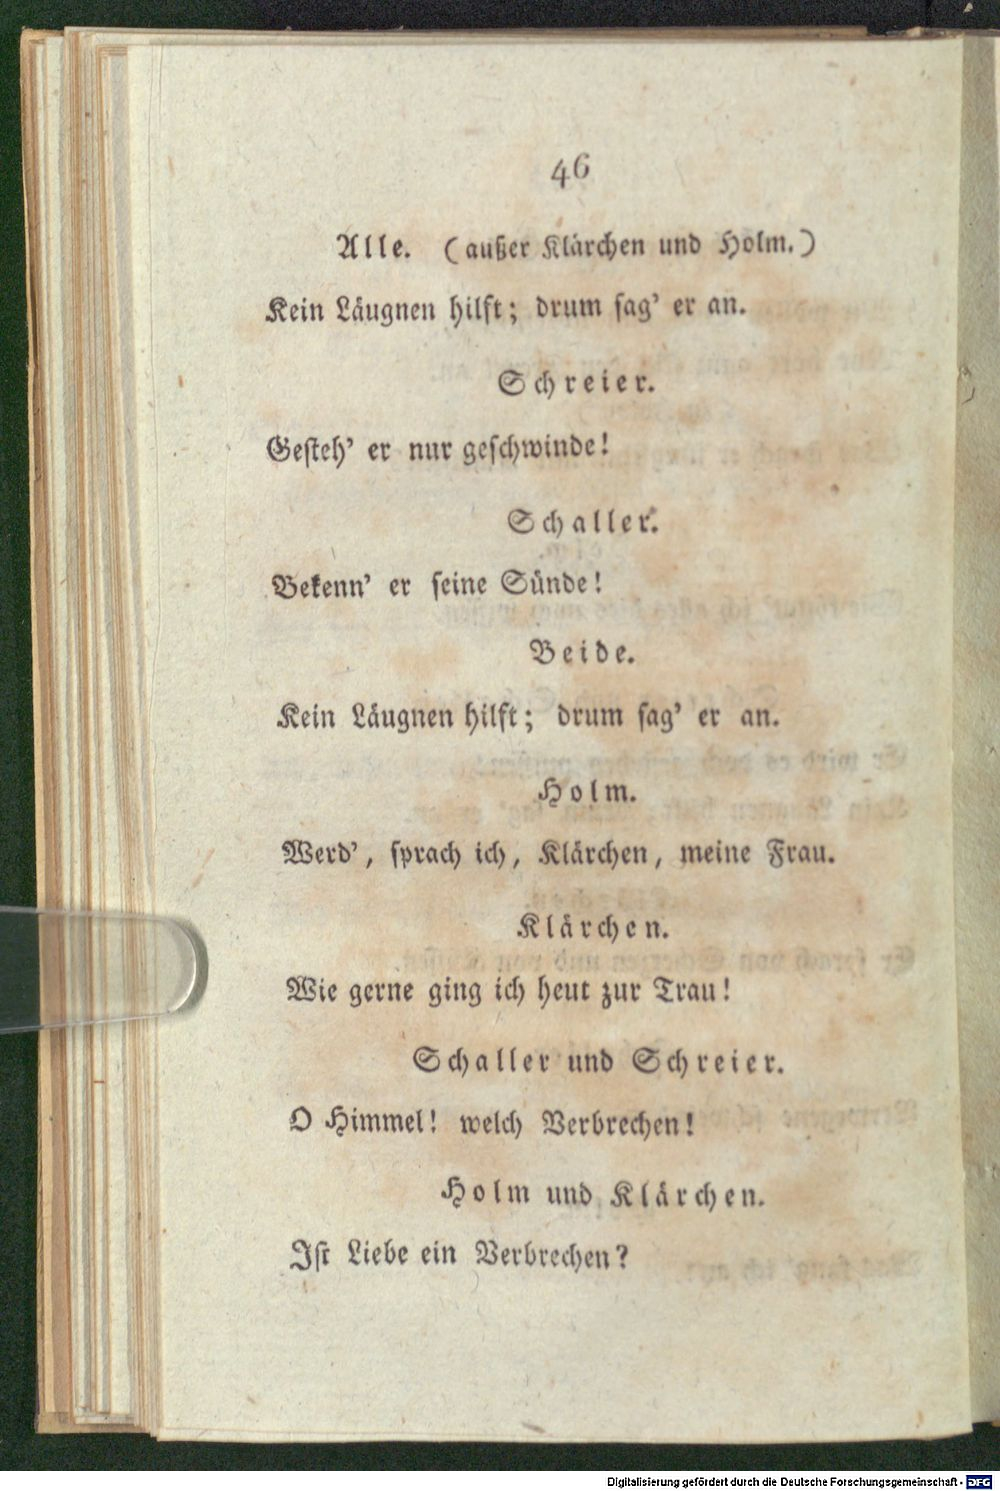 46
Alle. (außer Klärchen und Holm.)
Kein Läugnen hilft; drum sag' er an.
Schreier.
Gesteh' er nur geschwinde!
Schaller.
Bekenn' er seine Sünde!
Beide.
Kein Läugnen hilft; drum sag' er an.
Holm.
Werd', sprach ich, Klärchen, meine Frau.
Klärchen.
Wie gerne ging ich heut zur Trau!
Schaller und Schreier.
O Himmel! welch Verbrechen!
Holm und Klärchen.
Ist Liebe ein Verbrechen?
Digitalisierung gefördert durch die Deutsche Forschungsgemeinschaft - DFG